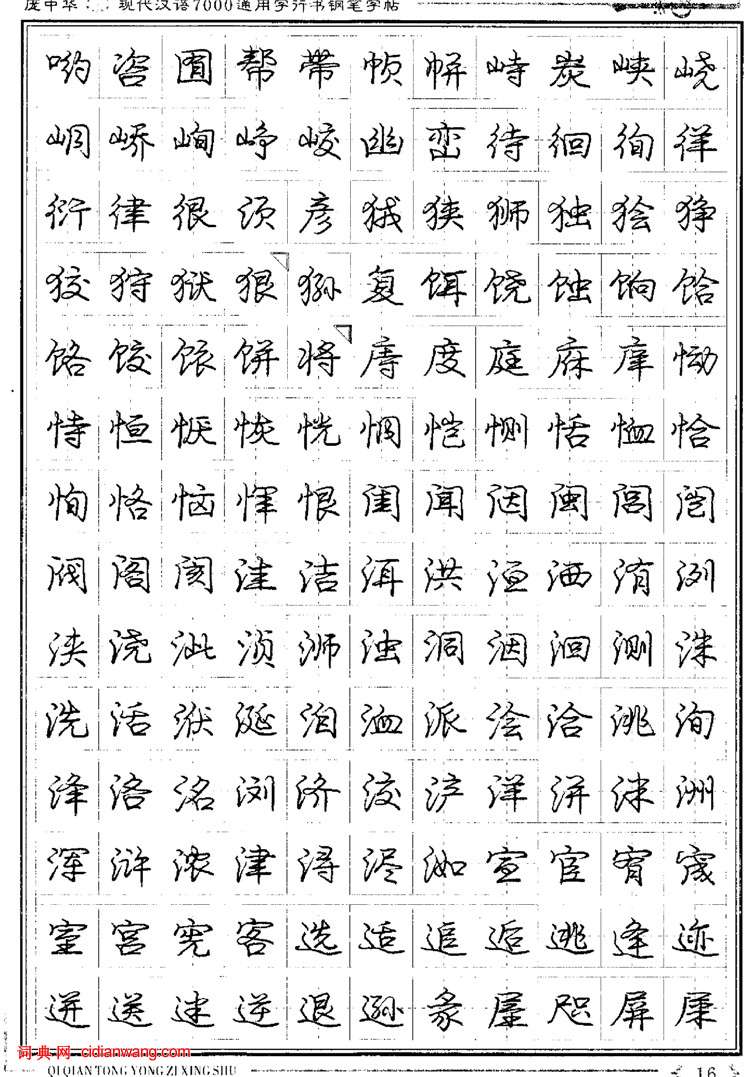 庞中华：现代汉语7000通用字行书钢笔字帖
哟 咨 囿 帮 带 帧 帡 峙 炭 峡 峣
峒 峤 峋 峥 峧 幽 峦 待 徊 徇 徉
衍 律 很 须 彦 狨 狭 狮 独 狯 狰
狡 狩 狱 狠 狲 复 饵 饶 蚀 饷 饸
饹 饺 饻 饼 将 庤 度 庭 庥 庠 恸
恃 恒 恹 恢 恍 恫 恺 恻 恬 恤 恰
恂 恪 恼 恽 恨 闺 闻 闽 闾 闿
阀 阁 阂 洼 洁 洱 洪 洹 洒 洧 洌
浃 浇 泚 浈 浉 浊 洞 洇 洄 测 洙
洗 活 洑 涎 洎 洫 派 浍 洽 洮 洵
洚 洛 洺 浏 济 洨 浐 洋 洴 洣 洲
浑 浒 浓 津 浔 浕 洳 宣 宦 宥 宬
室 宫 宪 客 选 适 追 逅 逃 逄 迹
迸 送 迷 逆 退 逊 彖 咫 屏 屎
词典网 cidianwang.com
QI QIAN TONG YONG ZI XING SHU
16